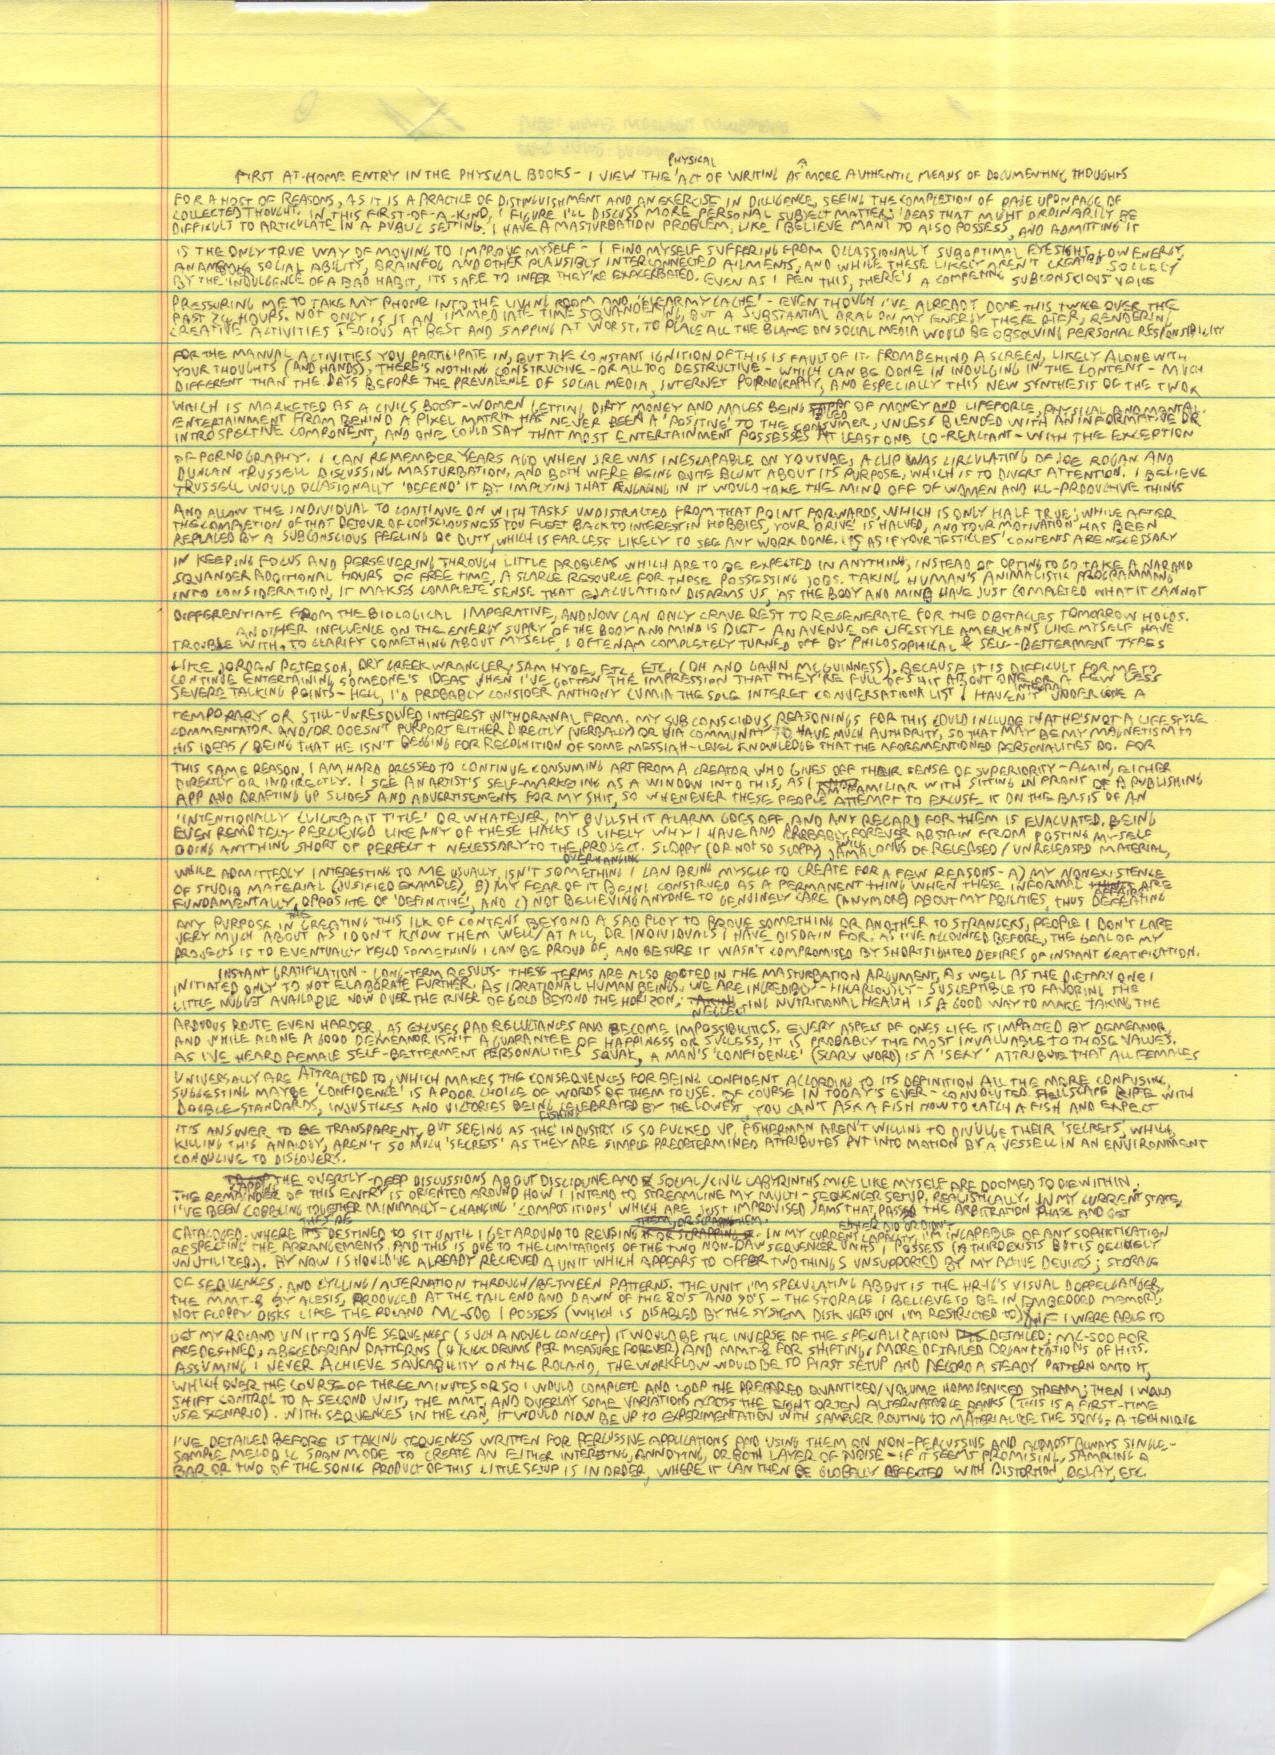 FIRST AT-HOME ENTRY IN THE PHYSICAL BOOKS - I VIEW THE PHYSICAL ACT OF WRITING AS A MORE AUTHENTIC MEANS OF DOCUMENTING THOUGHTS
FOR A HOST OF REASONS, AS IT IS A PRACTICE OF DISTINGUISHMENT AND AN EXERCISE IN DILIGENCE, SEEING THE COMPLETION OF PAGE UPON PAGE OF
COLLECTED THOUGHT. IN THIS FIRST-OF-A-KIND, I FIGURE I'LL DISCUSS MORE PERSONAL SUBJECT MATTER; IDEAS THAT MIGHT ORDINARILY BE
DIFFICULT TO ARTICULATE IN A PUBLIC SETTING. I HAVE A MASTURBATION PROBLEM, LIKE I BELIEVE MANY TO ALSO POSSESS, AND ADMITTING IT
IS THE ONLY TRUE WAY OF MOVING TO IMPROVE MYSELF - I FIND MYSELF SUFFERING FROM OCCASSIONALLY SUBOPTIMAL EYESIGHT, LOW ENERGY,
SOCIAL ABILITY, BRAINFOG AND OTHER PLAUSIBLY INTERCONNECTED AILMENTS, AND WHILE THESE LIKELY AREN'T CREATED SOLELY
BY THE INDULGENCE OF A BAD HABIT, ITS SAFE TO INFER THEY'RE EXACERBATED. EVEN AS I PEN THIS, THERE'S A COMPETING SUBCONSCIOUS VOICE
PRESSURING ME TO TAKE MY PHONE INTO THE LIVING ROOM AND 'CLEAR MY CACHE' - EVEN THOUGH I'VE ALREADY DONE THIS TWICE OVER THE
PAST 24 HOURS. NOT ONLY IS IT AN IMMEDIATE TIME SQUANDERING, BUT A SUBSTANTIAL DRAG ON MY ENERGY THEREAFTER, RENDERING
CREATIVE ACTIVITIES TEDIOUS AT BEST AND SAPPING AT WORST. TO PLACE ALL THE BLAME ON SOCIAL MEDIA WOULD BE ABSOLVING PERSONAL RESPONSIBILITY
FOR THE MANUAL ACTIVITIES YOU PARTICIPATE IN, BUT THE CONSTANT IGNITION OF THIS IS FAULT OF IT. FROM BEHIND A SCREEN, LIKELY ALONE WITH
YOUR THOUGHTS (AND HANDS), THERE'S NOTHING CONSTRUCTIVE - OR ALL TOO DESTRUCTIVE - WHICH CAN BE DONE IN INDULGING IN THE CONTENT - MUCH
DIFFERENT THAN THE DAYS BEFORE THE PREVALENCE OF SOCIAL MEDIA, INTERNET PORNOGRAPHY, AND ESPECIALLY THIS NEW SYNTHESIS OF THE TWO
WHICH IS MARKETED AS A CIVICS BOOST - WOMEN GETTING DIRTY MONEY AND MALES BEING BLED OF MONEY AND LIFEFORCE, PHYSICAL AND MENTAL.
ENTERTAINMENT FROM BEHIND A PIXEL MATRIX HAS NEVER BEEN A 'POSITIVE' TO THE CONSUMER, UNLESS BLENDED WITH AN INFORMATIVE OR
INTROSPECTIVE COMPONENT, AND ONE COULD SAY THAT MOST ENTERTAINMENT POSSESSES AT LEAST ONE CO-REACTANT - WITH THE EXCEPTION
OF PORNOGRAPHY. I CAN REMEMBER YEARS AGO WHEN JRE WAS INESCAPABLE ON YOUTUBE, A CLIP WAS CIRCULATING OF JOE ROGAN AND
DUNCAN TRUSSELL DISCUSSING MASTURBATION, AND BOTH WERE BEING QUITE BLUNT ABOUT ITS PURPOSE, WHICH IS TO DIVERT ATTENTION. I BELIEVE
TRUSSELL WOULD OCCASIONALLY 'DEFEND' IT BY IMPLYING THAT ENGAGING IN IT WOULD TAKE THE MIND OFF OF WOMEN AND ILL-PRODUCTIVE THINGS
AND ALLOW THE INDIVIDUAL TO CONTINUE ON WITH TASKS UNDISTRACTED FROM THAT POINT FORWARDS, WHICH IS ONLY HALF TRUE; WHILE AFTER
THE COMPLETION OF THAT DETOUR OF CONSCIOUSNESS YOU FLEET BACK TO INTEREST IN HOBBIES, YOUR 'DRIVE' IS HALVED, AND YOUR MOTIVATION HAS BEEN
REPLACED BY A SUBCONSCIOUS FEELING OF DUTY, WHICH IS FAR LESS LIKELY TO SEE ANY WORK DONE. IT'S AS IF YOUR TESTICLES' CONTENTS ARE NECESSARY
IN KEEPING FOCUS AND PERSEVERING THROUGH LITTLE PROBLEMS WHICH ARE TO BE EXPECTED IN ANYTHING, INSTEAD OF OPTING TO GO TAKE A NAP AND
SQUANDER ADDITIONAL HOURS OF FREE TIME, A SCARCE RESOURCE FOR THOSE POSSESSING JOBS. TAKING HUMAN'S ANIMALISTIC PROGRAMMING
INTO CONSIDERATION, IT MAKES COMPLETE SENSE THAT EJACULATION DISARMS US, AS THE BODY AND MIND HAVE JUST COMPLETED WHAT IT CANNOT
DIFFERENTIATE FROM THE BIOLOGICAL IMPERATIVE, AND NOW CAN ONLY CRAVE REST TO REGENERATE FOR THE OBSTACLES TOMORROW HOLDS.
ANOTHER INFLUENCE ON THE ENERGY SUPPLY OF THE BODY AND MIND IS DIET - AN AVENUE OF LIFESTYLE AMERICANS LIKE MYSELF HAVE
TROUBLE WITH. TO CLARIFY SOMETHING ABOUT MYSELF, I OFTEN AM COMPLETELY TURNED OFF BY PHILOSOPHICAL & SELF-BETTERMENT TYPES
LIKE JORDAN PETERSON, DRY CREEK WRANGLER, SAM HYDE, ETC. ETC. (OH AND GAVIN MCGUINNESS). BECAUSE IT IS DIFFICULT FOR ME TO
CONTINUE ENTERTAINING SOMEONE'S IDEAS WHEN I'VE GOTTEN THE IMPRESSION THAT THEY'RE FULL OF SHIT ABOUT ONE OR A FEW LESS
SEVERE TALKING POINTS - HELL, I'D PROBABLY CONSIDER ANTHONY CUMIA THE SOLE INTERET CONVERSATIONALIST I HAVEN'T UNDERGONE A
TEMPORARY OR STILL-UNRESOLVED INTEREST WITHDRAWAL FROM. MY SUBCONSCIOUS REASONINGS FOR THIS COULD INCLUDE THAT HE'S NOT A LIFESTYLE
COMMENTATOR AND/OR DOESN'T PURPORT EITHER DIRECTLY (VERBALLY) OR VIA COMMUNITY TO HAVE MUCH AUTHORITY, SO THAT MAY BE MY MAGNETISM TO
HIS IDEAS / BEING THAT HE ISN'T BEGGING FOR RECOGNITION OF SOME MESSIAH-LEVEL KNOWLEDGE THAT THE AFOREMENTIONED PERSONALITIES DO. FOR
THIS SAME REASON, I AM HARD PRESSED TO CONTINUE CONSUMING ART FROM A CREATOR WHO GIVES OFF THEIR SENSE OF SUPERIORITY - AGAIN, EITHER
DIRECTLY OR INDIRECTLY. I SEE AN ARTIST'S SELF-MARKETING AS A WINDOW INTO THIS, AS I AM FAMILIAR WITH SITTING IN FRONT OF A PUBLISHING
APP AND DRAFTING UP SLIDES AND ADVERTISEMENTS FOR MY SHIT, SO WHENEVER THESE PEOPLE ATTEMPT TO EXCUSE IT ON THE BASIS OF AN
'INTENTIONALLY CLICKBAIT TITLE' OR WHATEVER, MY BULLSHIT ALARM GOES OFF, AND ANY REGARD FOR THEM IS EVALUATED. BEING
EVEN REMOTELY PERCIEVED LIKE ANY OF THESE HACKS IS LIKELY WHY I HAVE AND PROBABLY WILL FOREVER ABSTAIN FROM POSTING MYSELF
DOING ANYTHING SHORT OF PERFECT + NECESSARY TO THE PROJECT. SLOPPY (OR NOT SO SLOPPY) OF RELEASED / UNRELEASED MATERIAL,
WHILE ADMITTEDLY INTERESTING TO ME USUALLY, ISN'T SOMETHING I CAN BRING MYSELF TO CREATE FOR A FEW REASONS - A) MY NONEXISTENCE
OF STUDIO MATERIAL (JUSTIFIED EXAMPLE), B) MY OVERHANGING FEAR OF IT BEING CONSTRUED AS A PERMANENT THING WHEN THESE INFORMAL AFFAIRS ARE
FUNDAMENTALLY OPPOSITE OF 'DEFINITIVE', AND C) NOT BELIEVING ANYONE TO GENUINELY CARE (ANYMORE) ABOUT MY ABILITIES, THUS DEFEATING
ANY PURPOSE IN THE CREATING THIS ILK OF CONTENT BEYOND A SAD PLOY TO PROVE SOMETHING OR ANOTHER TO STRANGERS, PEOPLE I DON'T CARE
VERY MUCH ABOUT AS I DON'T KNOW THEM WELL/AT ALL, OR INDIVIDUALS I HAVE DISDAIN FOR. AS I'VE ALLOUNTED BEFORE, THE GOAL OF MY
PROJECTS IS TO EVENTUALLY YEILD SOMETHING I CAN BE PROUD OF, AND BE SURE IT WASN'T COMPROMISED BY SHORTSIGHTED DESIRES OF INSTANT GRATIFICATION.
INSTANT GRATIFICATION - LONG-TERM RESULTS - THESE TERMS ARE ALSO ROOTED IN THE MASTURBATION ARGUMENT, AS WELL AS THE DIETARY ONE I
INITIATED ONLY TO NOT ELABORATE FURTHER. AS IRRATIONAL HUMAN BEINGS, WE ARE INCREDIBLY - HILARIOUSLY - SUSCEPTIBLE TO FAVORING THE
LITTLE NUGGET AVAILABLE NOW OVER THE RIVER OF GOLD BEYOND THE HORIZON. NEGLECTING NUTRITIONAL HEALTH IS A GOOD WAY TO MAKE TAKING THE
ARDUOUS ROUTE EVEN HARDER, AS EXCUSES PAD RELUCTANCES AND BECOME IMPOSSIBILITIES. EVERY ASPECT OF ONES LIFE IS IMPACTED BY DEMEANOR,
AND WHILE ALONE A GOOD DEMEANOR ISN'T A GUARANTEE OF HAPPINESS OR SUCCESS, IT IS PROBABLY THE MOST INVALUABLE TO THOSE VALUES.
AS I'VE HEARD FEMALE SELF-BETTERMENT PERSONALITIES SQUAK, A MAN'S 'CONFIDENCE' (SCARY WORD) IS A 'SEXY' ATTRIBUTE THAT ALL FEMALES
UNIVERSALLY ARE ATTRACTED TO, WHICH MAKES THE CONSEQUENCES FOR BEING CONFIDENT ACCORDING TO ITS DEFINITION ALL THE MORE CONFUSING,
SUGGESTING MAYBE 'CONFIDENCE' IS A POOR CHOICE OF WORDS OF THEM TO USE. OF COURSE IN TODAY'S EVER-CONVOLUTED HELLSCAPE RIFE WITH
DOUBLE-STANDARDS, INJUSTICES AND VICTORIES BEING CELEBRATED BY THE LOWEST, YOU CAN'T ASK A FISH HOW TO CATCH A FISH AND EXPECT
IT'S ANSWER TO BE TRANSPARENT, BUT SEEING AS THE FISHING INDUSTRY IS SO FUCKED UP, FISHERMAN AREN'T WILLING TO DIVULGE THEIR 'SECRETS', WHICH,
KILLING THIS ANALOGY, AREN'T SO MUCH 'SECRETS' AS THEY ARE SIMPLE PREDETERMINED ATTRIBUTES PUT INTO MOTION BY A VESSELL IN AN ENVIRONMENT
CONDUCIVE TO DISCOVERY.
THE OVERTLY-DEEP DISCUSSIONS ABOUT DISCIPLINE AND SOCIAL/CIVIL LABYRINTHS MICE LIKE MYSELF ARE DOOMED TO DIE WITHIN,
THE REMAINDER OF THIS ENTRY IS ORIENTED AROUND HOW I INTEND TO STREAMLINE MY MULTI-SEQUENCER SETUP, REALISTICALLY. IN MY CURRENT STATE,
I'VE BEEN COBBLING TOGETHER MINIMALLY-CHANGING 'COMPOSITIONS' WHICH ARE JUST IMPROVISED JAMS THAT PASS THE ARBITRATION PHASE AND GET
CATALOGED, WHERE THEY'RE DESTINED TO SIT UNTIL I GET AROUND TO REVISING THEM, OR SCRAPPING THEM. IN MY CURRENT CAPACITY, I'M INCAPABLE OF ANY SOPHISTICATION
RESPECTING THE ARRANGEMENTS, AND THIS IS DUE TO THE LIMITATIONS OF THE TWO NON-DAW SEQUENCER UNITS I POSSESS (A THIRD EXISTS BUT IS
UNUTILIZED). BY NOW I SHOULD'VE ALREADY RECIEVED A UNIT WHICH APPEARS TO OFFER TWO THINGS UNSUPPORTED BY MY ACTIVE DEVICES; STORAGE
OF SEQUENCES, AND CYCLING/ALTERNATION THROUGH/BETWEEN PATTERNS. THE UNIT I'M SPECULATING ABOUT IS THE HR-16'S VISUAL DOPPELGANGER,
THE MMT-8 BY ALESIS, PRODUCED AT THE TAIL END AND DAWN OF THE 80'S AND 90'S - THE STORAGE I BELIEVE TO BE IN EMBEDDED MEMORY,
NOT FLOPPY DISKS LIKE THE ROLAND MC-500 I POSSESS (WHICH IS DISABLED BY THE SYSTEM DISK VERSION I'M RESTRICTED TO). IF I WERE ABLE TO
GET MY ROLAND UNIT TO SAVE SEQUENCES (SUCH A NOVEL CONCEPT) IT WOULD BE THE INVERSE OF THE SPECIALIZATION DETAILED; MC-500 FOR
PREDESTINED, ABECEDARIAN PATTERNS (4 KICK DRUMS PER MEASURE FOREVER) AND MMT-8 FOR SHIFTING, MORE DETAILED ORGANIZATIONS OF HITS.
ASSUMING I NEVER ACHIEVE SAVEABILITY ON THE ROLAND, THE WORKFLOW WOULD BE TO FIRST SETUP AND RECORD A STEADY PATTERN ONTO IT,
WHICH OVER THE COURSE OF THREE MINUTES OR SO I WOULD COMPLETE AND LOOP THE PREPARED QUANTIZED/VOLUME HOMOGENISED STREAM; THEN I WOULD
SHIFT CONTROL TO A SECOND UNIT, THE MMT, AND OVERLAY SOME VARIATIONS ACROSS THE EIGHT OR TEN ALTERNATABLE BANKS (THIS IS A FIRST-TIME
USE SCENARIO). WITH SEQUENCES IN THE CAN, IT WOULD NOW BE UP TO EXPERIMENTATION WITH SAMPLER ROUTING TO MATERIALIZE THE SONG; A TECHNIQUE
I'VE DETAILED BEFORE IS TAKING SEQUENCES WRITTEN FOR PERCUSSIVE APPLICATIONS AND USING THEM ON NON-PERCUSSIVE AND ALMOST ALWAYS SINGLE-
SAMPLE MELODIC SPAN MODE TO CREATE AN EITHER INTERESTING, ANNOYING, OR BOTH LAYER OF NOISE - IF IT SEEMS PROMISING, SAMPLING A
BAR OR TWO OF THE SONIC PRODUCT OF THIS LITTLE SETUP IS IN ORDER, WHERE IT CAN THEN BE GLOBALLY AFFECTED WITH DISTORTION, DELAY, ETC.